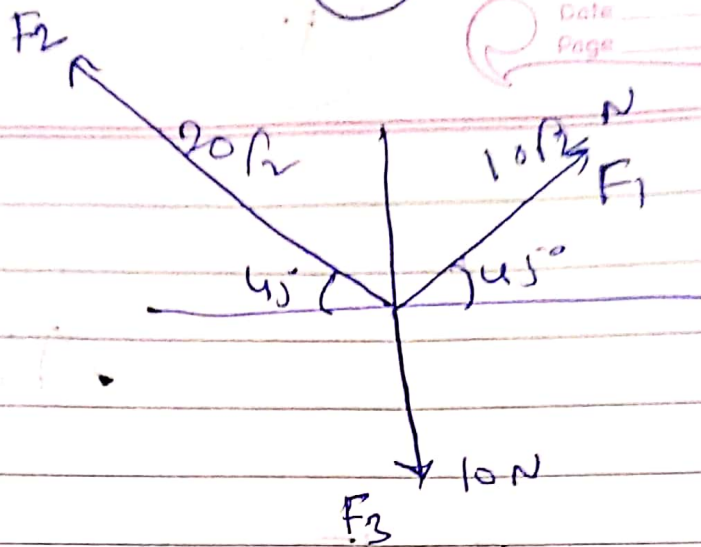 Date
Page
F2
20√2
10√2 N
F1
45
45°
10 N
F3